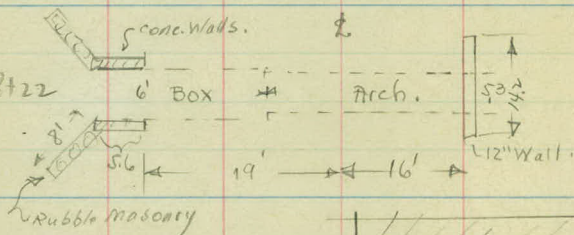 conc. Walls.
℄
2+22
6'
Box
Arch.
5.3
14.2
8'
5.6
19'
16'
12" Wall.
Rubble Masonry